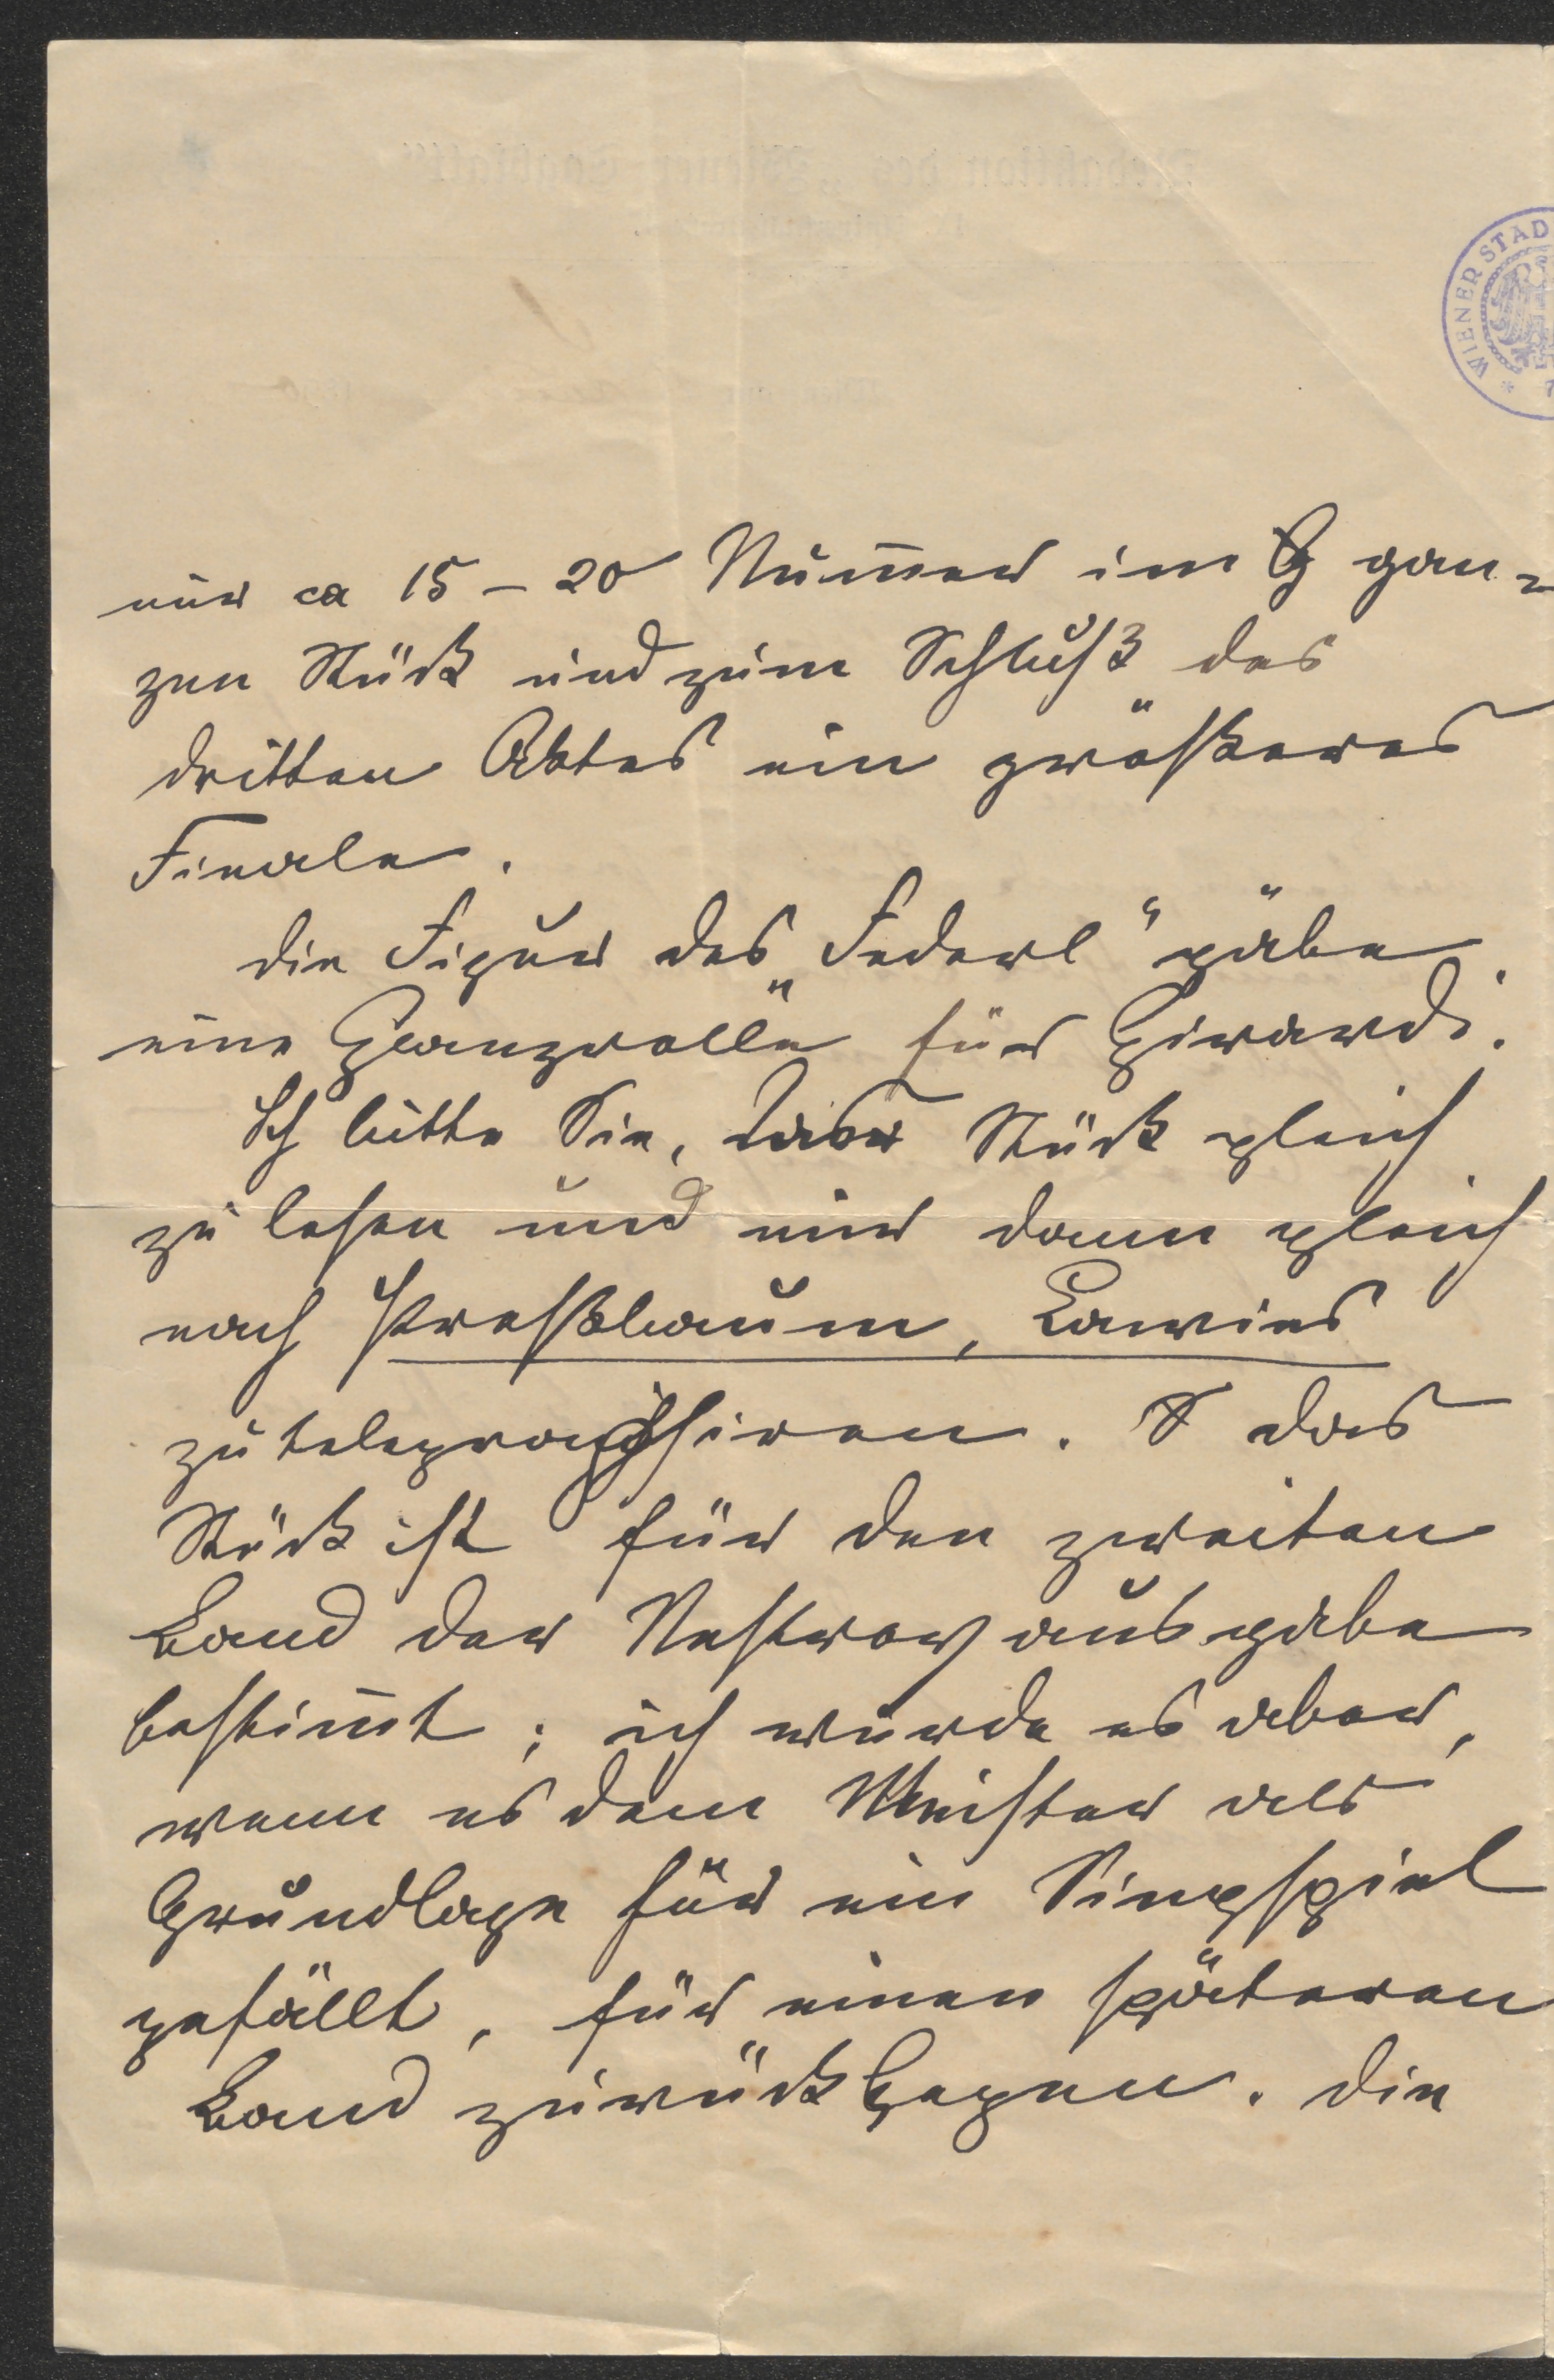 nur ca 15–20 Num̅er im G gan-
zen Stück und zum Schluß des
dritten Aktes ein größeres
Finale.
die Figur des „Federl“ gäbe
eine Glanzrolle für Girardi.
Ich bitte Sie, das Stück gleich
zu lesen und mir dann gleich
nach Preßbaum,
zu telegraphiren. das
Stück ist für den zweiten
Band der Nestroy ausgabe
bestim̅t; ich würde es aber,
wenn es dem Meister als
Grundlage für ein Singspiel
gefällt, für einen späteren
Band zurücklegen. die
WIENER STAD